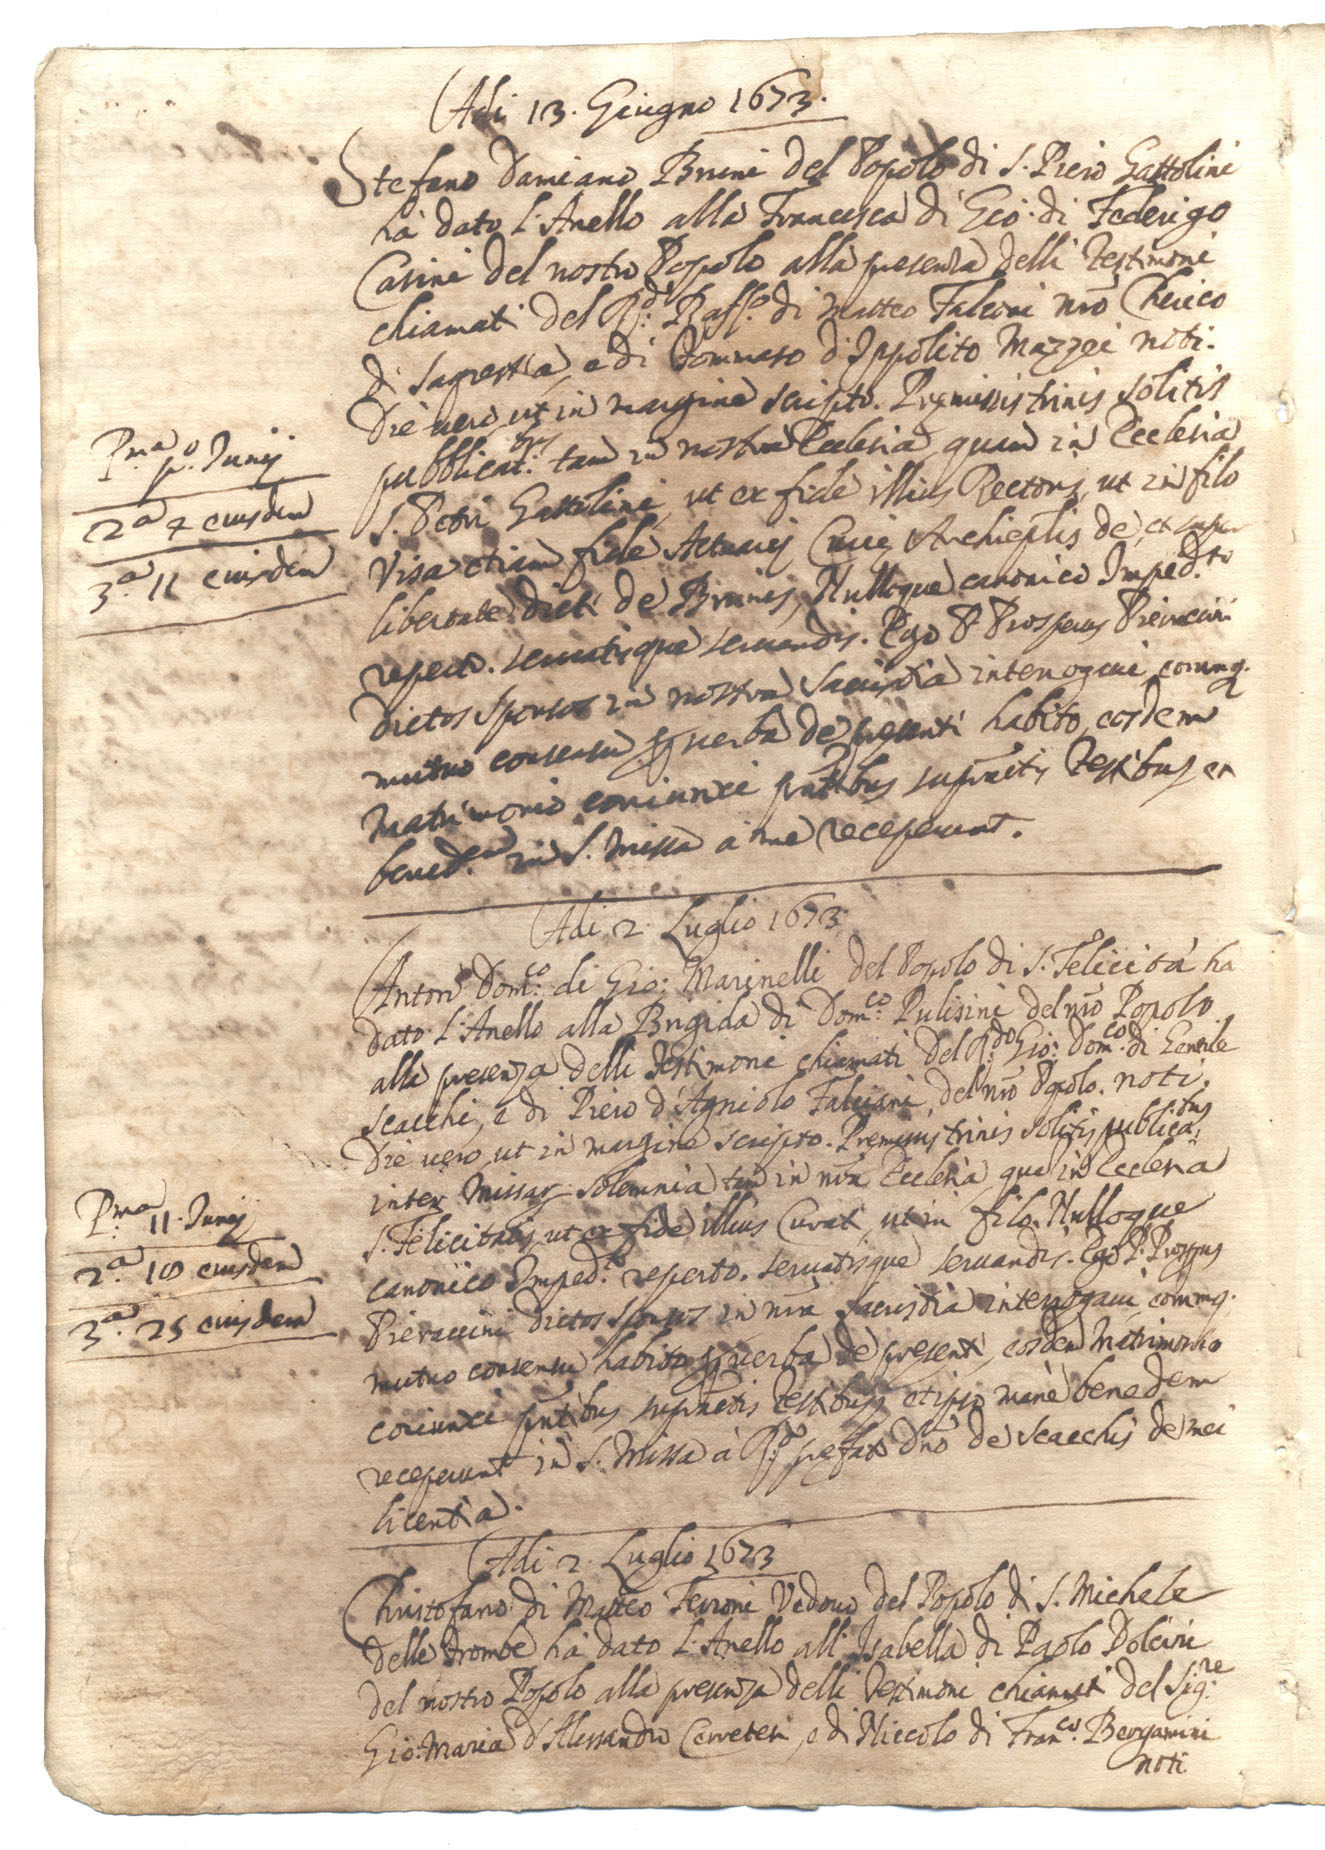 Adi 13. Giugno 1673.
Stefano Damiano Brini del Popolo di S. Piero Gattolini
hà dato l'Anello alla Francesca di Gio: di Federigo
Carini del nostro Popolo alla presenza delli Testimoni
chiamati del R:do Raff:o di Matteo Falcini nrõ Cherico
di Sagrestia, e di Tommaso d'Ippolito Mazzei noti.
Die uero ut in margine scripto. Premissis trinis solitis
pubblicat:bus tam in nostra Ecclesia quam in Ecclesia
S. Petri Gattolini, ut ex fide illius Rectoris, ut in filo
Visa etiam fide Actuarij Curie Archieplis de, et super
libertate dicti de Brinis, Nulloque canonico Imped.to
reperto. seruatisque seruandis. Ego P. Prosperus Pieraccini
dictos Sponsos in nostra Sacristia interrogaui, eorumq.
mutuo consensu p uerba de presenti habito, eosdem
Matrimonio coniunxi pñtibus supradtis Testibus et
bened.nem in S. Missa à me receperunt.
Pma p.o Junij
2.a 4 eiusdem
3.a 11 eiusdem
Adi 2. Luglio 1673.
Anton Dom:co di Gio: Marinelli del Popolo di S. Felicita ha
dato l'Anello alla Brigida di Dom:co Pulisini del nrõ Popolo
alla presenza delli Testimoni chiamati del R:do Gio: Dom:co di Gentile
Scacchi, e di Piero d'Agniolo Falciani del nrõ Popolo. noti.
Die uero ut in margine scripto. Premissis trinis solitis publica:bus
inter Missar. solemnia tam in nrã Ecclesia qua in Ecclesia
S. Felicitatis, ut ex fide illius Curati, ut in filo. Nulloque
canonico Imped:to reperto. seruatisque seruandis. Ego P. Prosprus
Pieraccini dictos Sponsos in nrã Sacristia interrogaui, eorumq.
mutuo consensu habito p uerba de presenti, eosdem Matrimonio
coniunxi pñtibus supradtis Testibus, et ipso mane benedem
receperunt in S. Missa à R:do prefato Dnõ de Scacchis de mei
licentia.
Pma 11. Junij
2.a 18 eiusdem
3.a 25 eiusdem
Adi 2. Luglio 1673
Christofano di Matteo Ferroni Vedouo del Popolo di S. Michele
delle Trombe hà dato l'Anello all'Isabella di Paolo Dolcini
del nostro Popolo alla presenza delli Testimoni chiamati del Sig:re
Gio: Maria d'Alessandro Cerveteri, e di Niccolo di Fran:co Bergamini
noti.